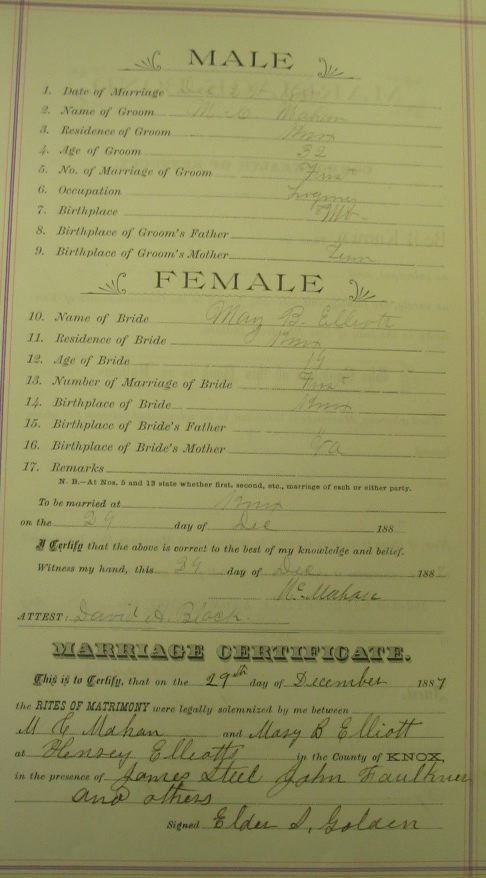 MALE
1. Date of Marriage Dec 29
2. Name of Groom M. C. Mahan
3. Residence of Groom Knox
4. Age of Groom 32
5. No. of Marriage of Groom First
6. Occupation
7. Birthplace
8. Birthplace of Groom's Father
9. Birthplace of Groom's Mother Tenn
FEMALE
10. Name of Bride Mary B. Elliott
11. Residence of Bride Knox
12. Age of Bride 19
13. Number of Marriage of Bride First
14. Birthplace of Bride Knox
15. Birthplace of Bride's Father "
16. Birthplace of Bride's Mother Va
17. Remarks
N. B.—At Nos. 5 and 13 state whether first, second, etc., marriage of each or either party.
To be married at Knox
on the 29 day of Dec 188
I Certify that the above is correct to the best of my knowledge and belief.
Witness my hand, this 29 day of Dec 188
Mahan
ATTEST: David H. Black
MARRIAGE CERTIFICATE.
This is to Certify, that on the 29th day of December 1887
the RITES OF MATRIMONY were legally solemnized by me between
M C Mahan and Mary B Elliott
at Henrey Elliotts in the County of KNOX,
in the presence of James Steel John Faulkner
and others
Signed Elder S. Golden